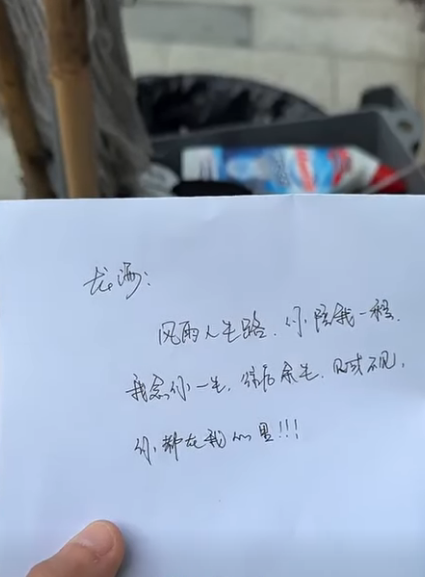 风雨人生路，你陪我一程，
我念你一生，往后余生，见或不见，
你都在我心里!!!